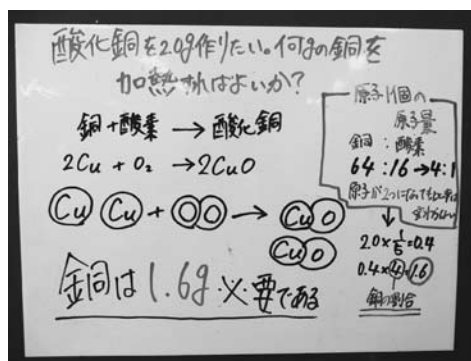 酸化銅を2.0g作りたい。何gの銅を
加熱すればよいか?
銅+酸素 → 酸化銅
2Cu + O₂ → 2CuO
Cu Cu + OO → CuO
CuO
銅は1.6g必要である
原子1個の
原子量
銅:酸素
64:16→4:1
原子が2つになっても比率は
変わらない
2.0×1/5=0.4
0.4×4=1.6
銅の割合